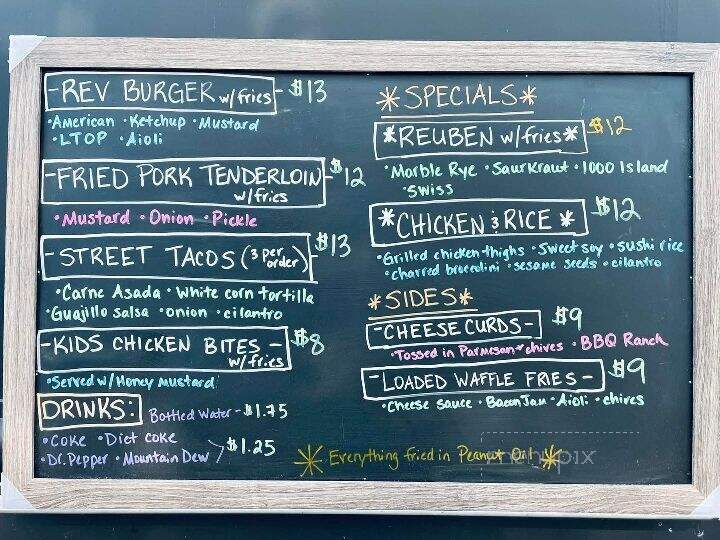 -REV BURGER w/fries- $13
•American •Ketchup •Mustard
•LTOP •Aioli
-FRIED PORK TENDERLOIN- $12
w/fries
•Mustard •Onion •Pickle
-STREET TACOS (3 per order)- $13
•Carne Asada •White corn tortilla
•Guajillo salsa •onion •cilantro
-KIDS CHICKEN BITES- $8
w/fries
•Served w/Honey mustard
DRINKS: Bottled Water - $1.75
•Coke •Diet coke
•Dr. Pepper •Mountain Dew > $1.25
*SPECIALS*
*REUBEN w/fries* $12
•Marble Rye •Saurkraut •1000 Island
•Swiss
*CHICKEN & RICE* $12
•Grilled chicken thighs •Sweet soy •sushi rice
•charred broccolini •sesame seeds •cilantro
*SIDES*
-CHEESE CURDS- $9
•Tossed in Parmesan + chives •BBQ Ranch
-LOADED WAFFLE FRIES- $9
•Cheese sauce •Bacon Jam •Aioli •chives
*Everything fried in Peanut Oil*
menupix